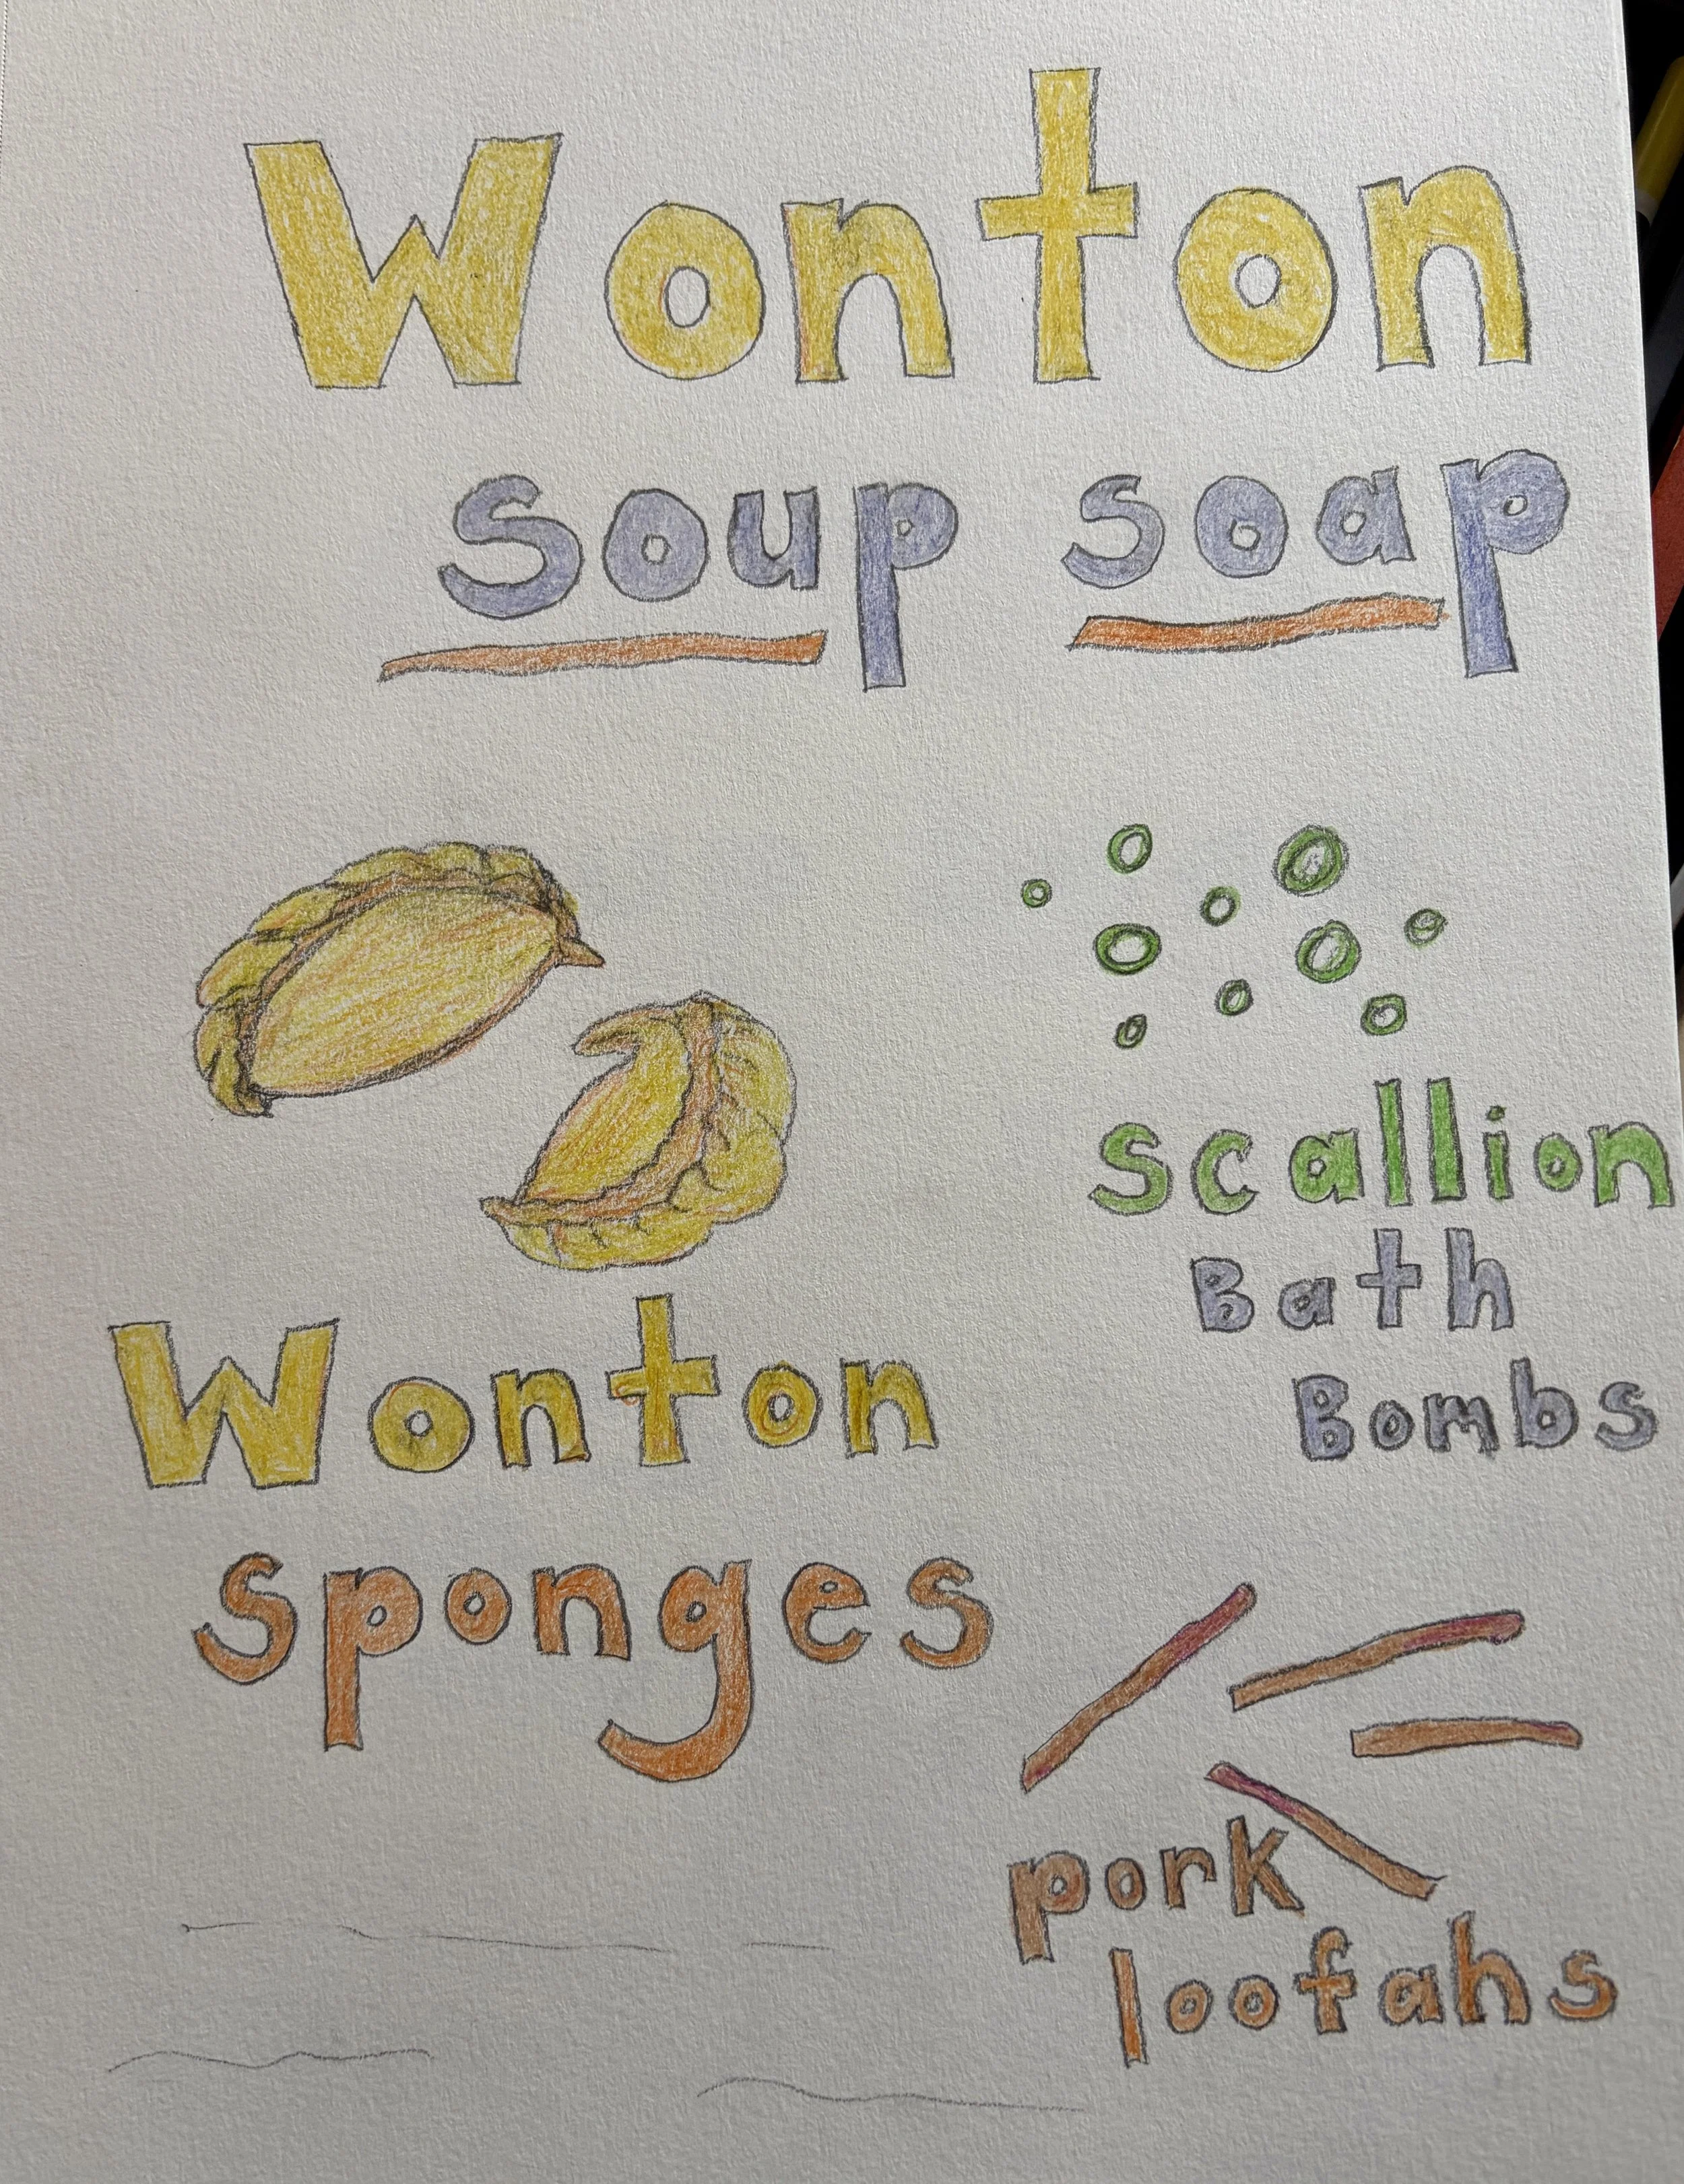 Wonton
soup soap
scallion
Bath
Bombs
Wonton
sponges
pork
loofahs